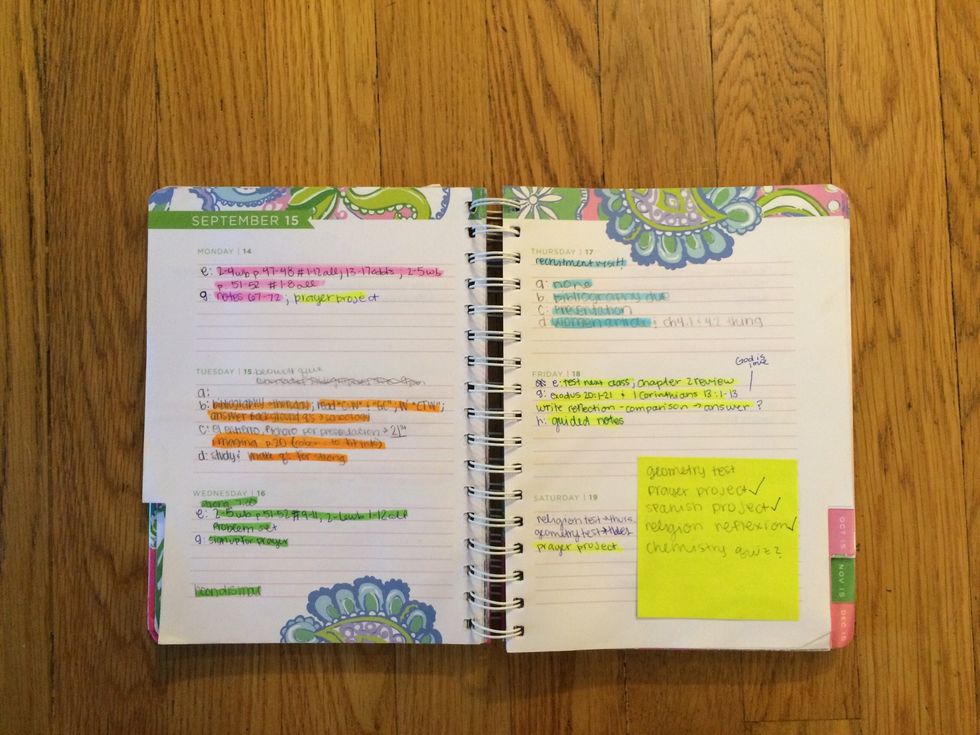 SEPTEMBER 15
MONDAY | 14
e: 2-4wb p.47-48 #1-12all, 13-17odds ; 2-5wb
p. 51-52 #1-8all
g: notes 67-72 ; prayer project
TUESDAY | 15
a:
b: bibliography thursday, read
answer background q's
c: presentation → 21st
imagine p.30
d: study! make q's for
WEDNESDAY | 16
e: 2-5wb p.51-52 #9-11, 2-6wb 1-12all
problem set
g: sign up for prayer
THURSDAY | 17
recruitment visit!
a: none
b. bibliography due
c: presentation
d ch4.1 + 4.2 thing
God is
love
FRIDAY | 18
e: test next class, chapter 2 review
g: exodus 20:1-21 + 1 Corinthians 13:1-13
write reflection - comparison → answer ?
h: guided notes
SATURDAY | 19
religion test → thurs.
geometry test → tues
prayer project
geometry test
prayer project ✓
spanish project ✓
religion reflexion ✓
chemistry quiz?
OCT 15
NOV 15
DEC 15